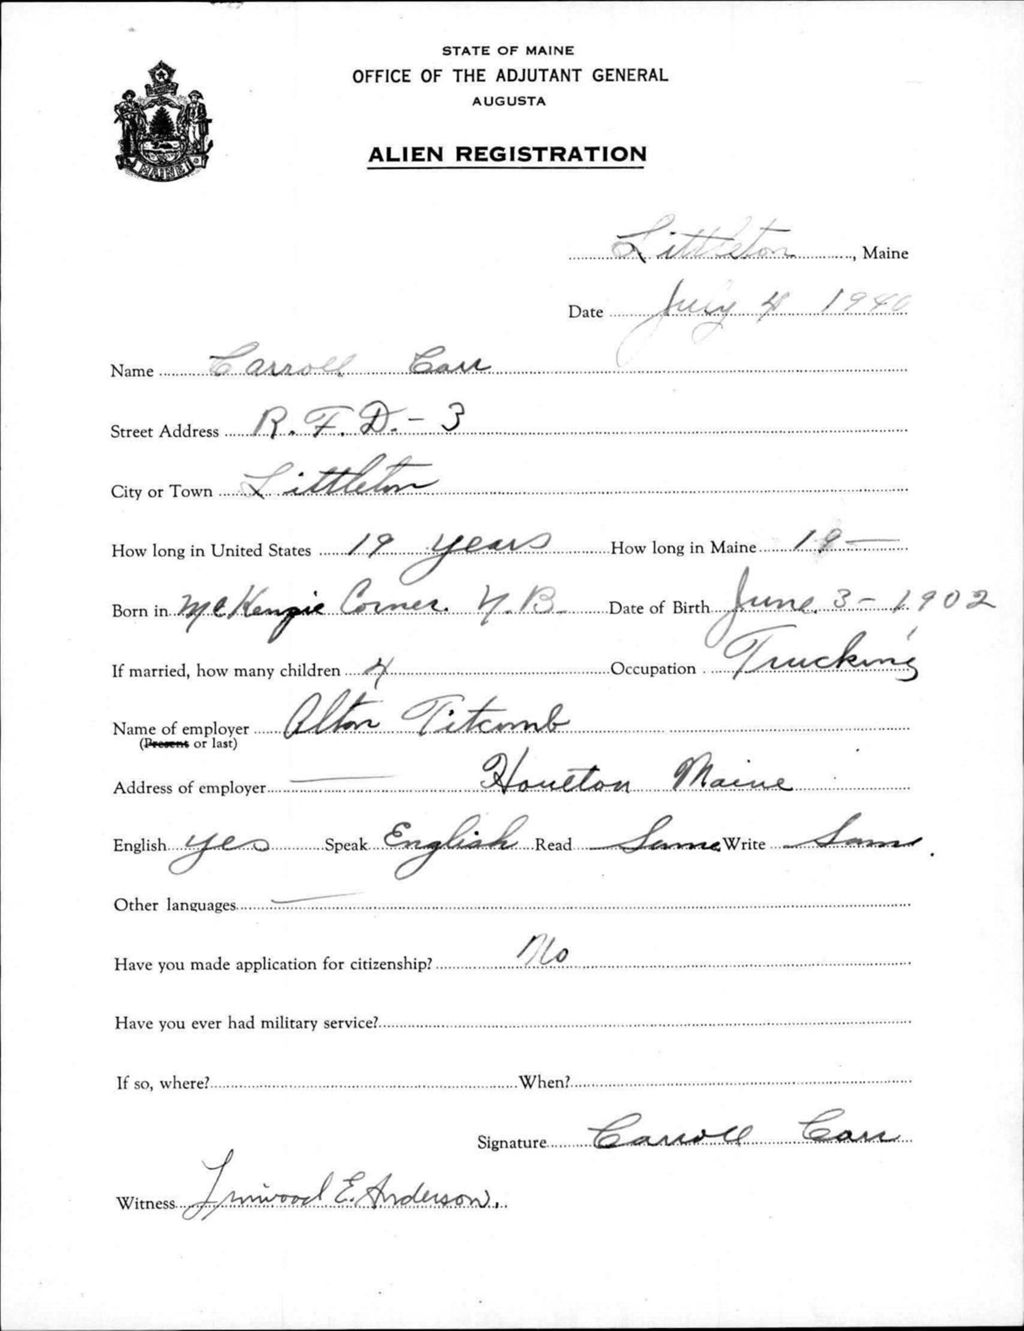 STATE OF MAINE
OFFICE OF THE ADJUTANT GENERAL
AUGUSTA
ALIEN REGISTRATION
MAINE
Littleton, Maine
Date July 4 1940
Name Carroll Carr
Street Address R.F.D.-3
City or Town Littleton
How long in United States 19 years How long in Maine 19 —
Born in McKenzie Corner. N.B. Date of Birth June 3-1902
If married, how many children 4 Occupation Trucking
Name of employer Alton Titcomb
(Present or last)
Address of employer — Houlton Maine
English yes Speak English Read Same Write Same.
Other languages —
Have you made application for citizenship? No
Have you ever had military service?
If so, where? When?
Signature Carroll Carr
Witness Linwood E. Anderson.